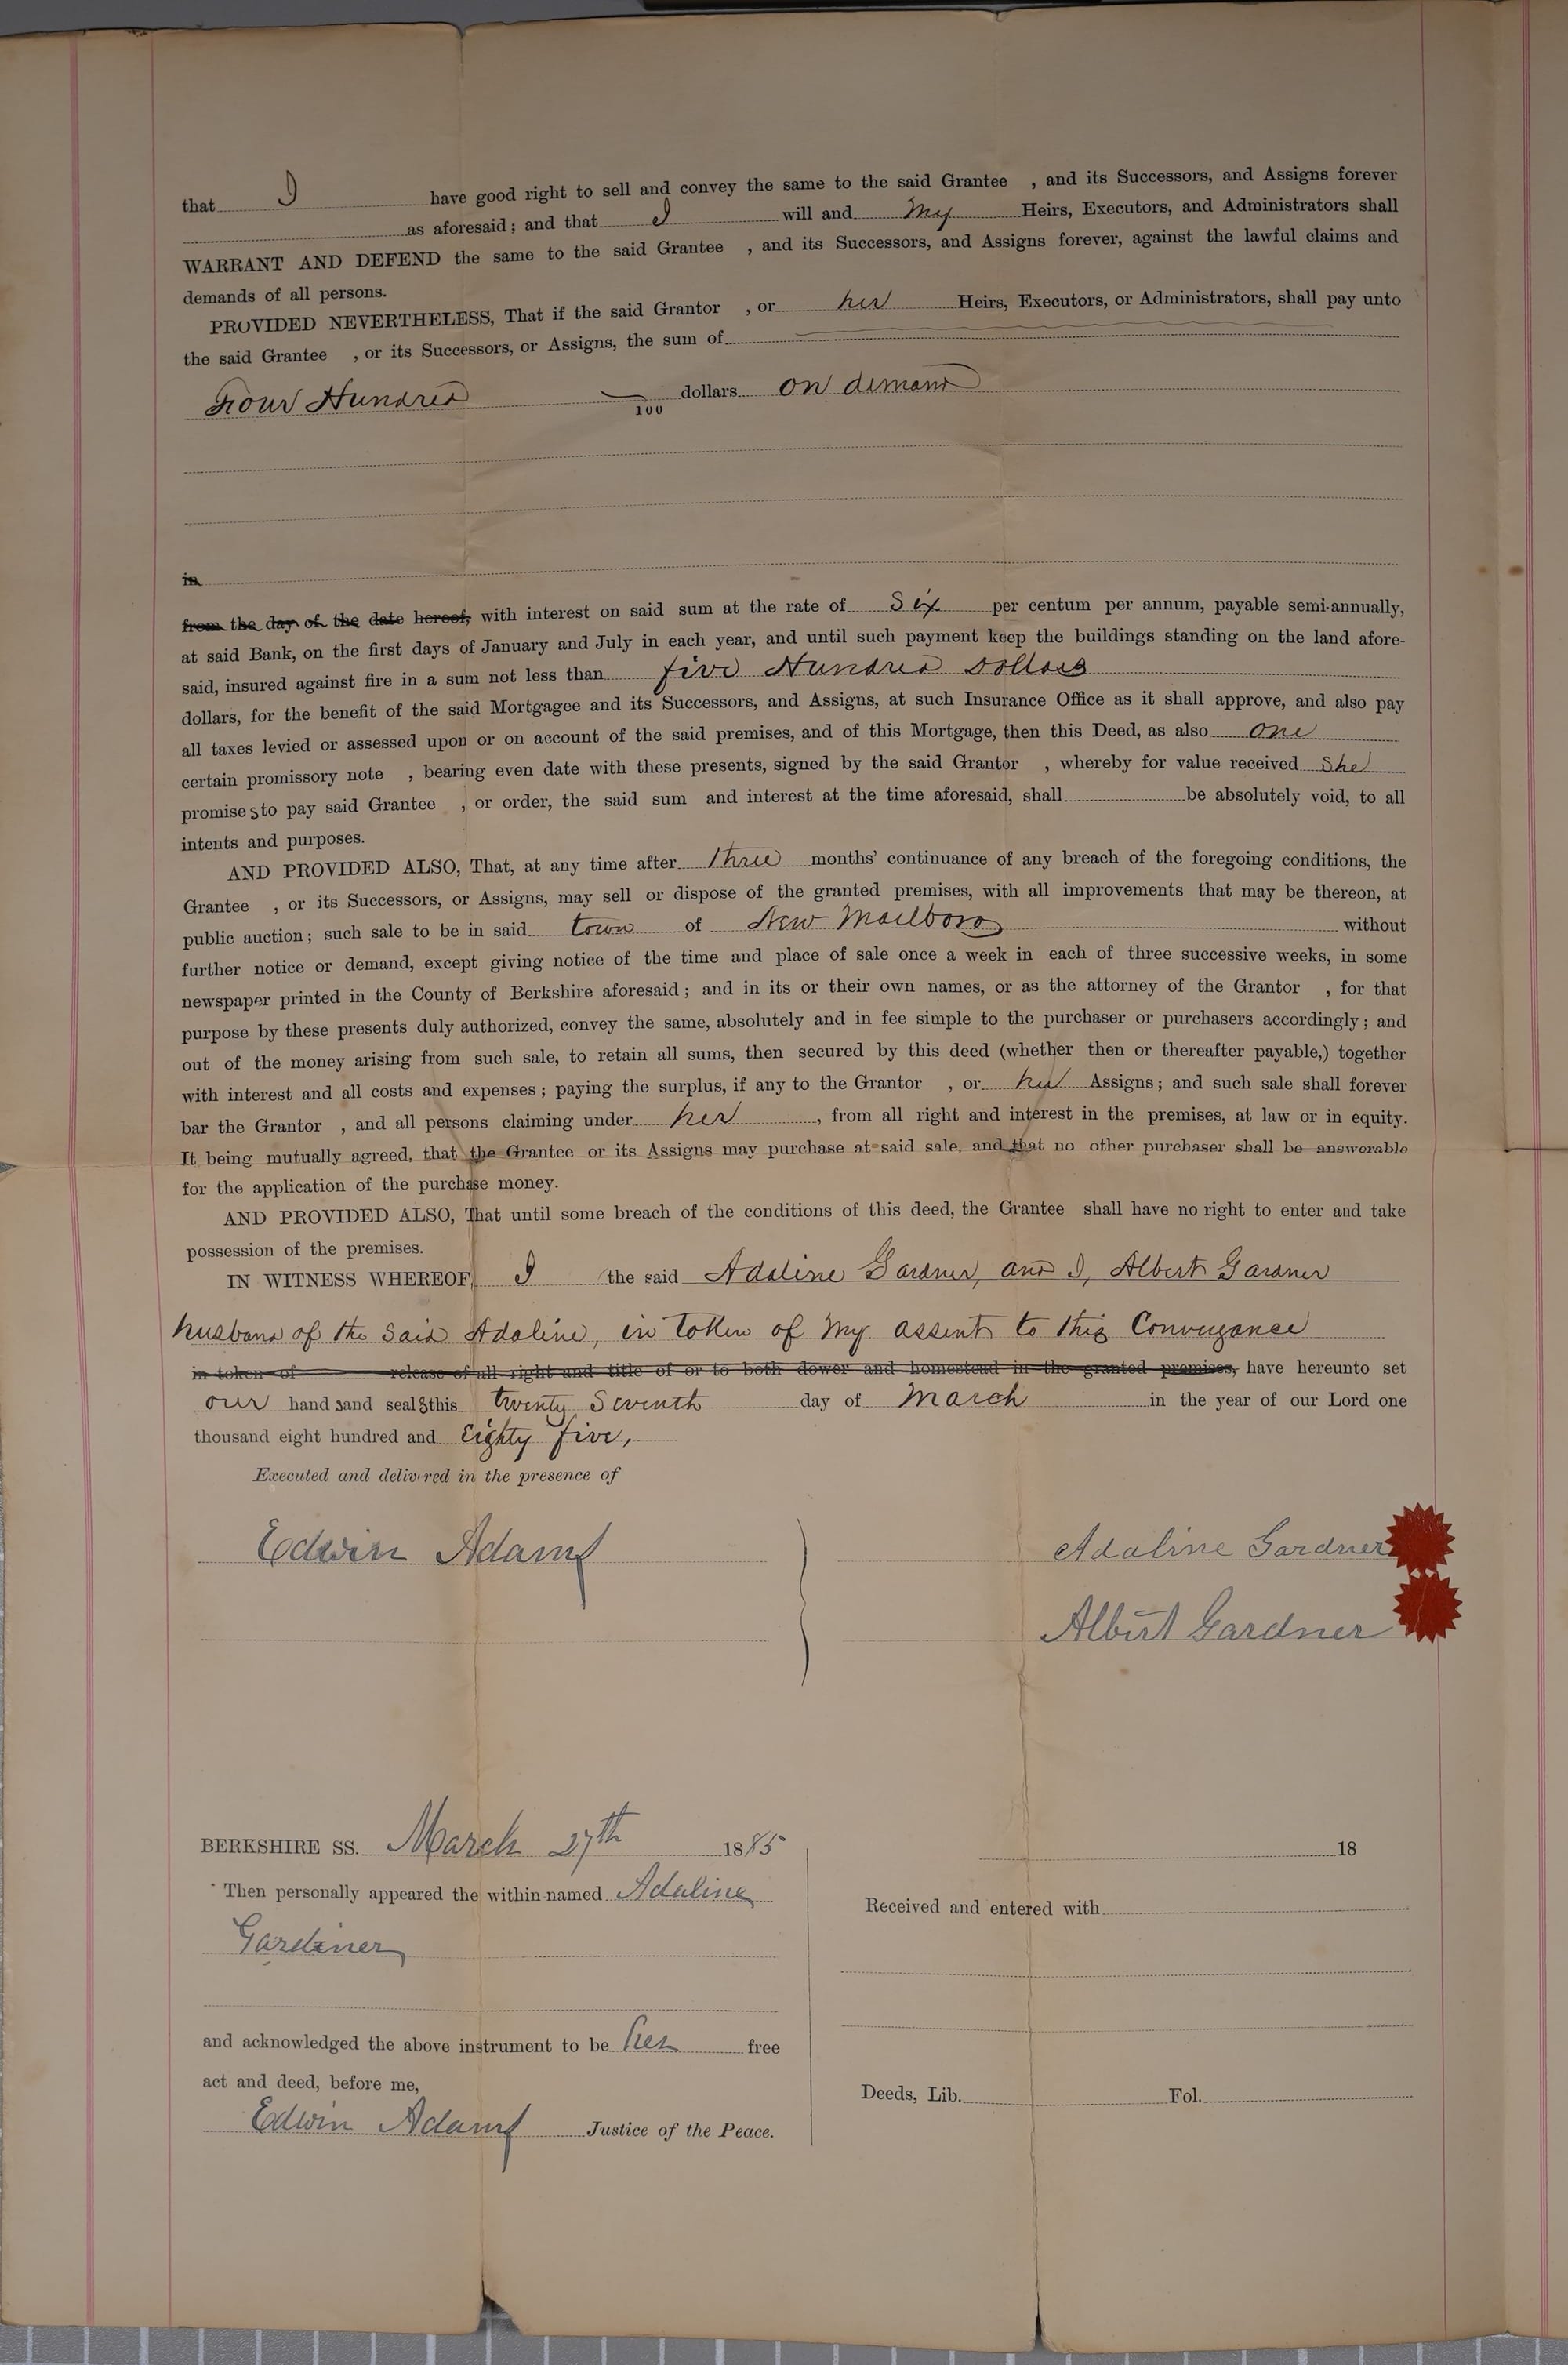 that I have good right to sell and convey the same to the said Grantee , and its Successors, and Assigns forever
as aforesaid; and that I will and My Heirs, Executors, and Administrators shall
WARRANT AND DEFEND the same to the said Grantee , and its Successors, and Assigns forever, against the lawful claims and
demands of all persons.
PROVIDED NEVERTHELESS, That if the said Grantor , or her Heirs, Executors, or Administrators, shall pay unto
the said Grantee , or its Successors, or Assigns, the sum of
Four Hundred — 100 dollars on demand
in
from the day of the date hereof, with interest on said sum at the rate of Six per centum per annum, payable semi-annually,
at said Bank, on the first days of January and July in each year, and until such payment keep the buildings standing on the land afore-
said, insured against fire in a sum not less than five Hundred Dollars
dollars, for the benefit of the said Mortgagee and its Successors, and Assigns, at such Insurance Office as it shall approve, and also pay
all taxes levied or assessed upon or on account of the said premises, and of this Mortgage, then this Deed, as also one
certain promissory note , bearing even date with these presents, signed by the said Grantor , whereby for value received She
promises to pay said Grantee , or order, the said sum and interest at the time aforesaid, shall be absolutely void, to all
intents and purposes.
AND PROVIDED ALSO, That, at any time after three months' continuance of any breach of the foregoing conditions, the
Grantee , or its Successors, or Assigns, may sell or dispose of the granted premises, with all improvements that may be thereon, at
public auction; such sale to be in said town of New Marlboro without
further notice or demand, except giving notice of the time and place of sale once a week in each of three successive weeks, in some
newspaper printed in the County of Berkshire aforesaid; and in its or their own names, or as the attorney of the Grantor , for that
purpose by these presents duly authorized, convey the same, absolutely and in fee simple to the purchaser or purchasers accordingly; and
out of the money arising from such sale, to retain all sums, then secured by this deed (whether then or thereafter payable,) together
with interest and all costs and expenses; paying the surplus, if any to the Grantor , or her Assigns; and such sale shall forever
bar the Grantor , and all persons claiming under her , from all right and interest in the premises, at law or in equity.
It being mutually agreed, that the Grantee or its Assigns may purchase at said sale, and that no other purchaser shall be answerable
for the application of the purchase money.
AND PROVIDED ALSO, That until some breach of the conditions of this deed, the Grantee shall have no right to enter and take
possession of the premises.
IN WITNESS WHEREOF, I the said Adaline Gardner, and I, Albert Gardner
husband of the said Adaline, in token of My assent to this Conveyance
in token of release of all right and title of or to both dower and homestead in the granted premises, have hereunto set
our hands and seals this twenty seventh day of March in the year of our Lord one
thousand eight hundred and Eighty five,
Executed and delivered in the presence of
Edwin Adams
Adaline Gardner
Albert Gardner
BERKSHIRE SS. March 27th 1885
Then personally appeared the within-named Adaline
Gardner
and acknowledged the above instrument to be her free
act and deed, before me,
Edwin Adams Justice of the Peace.
18
Received and entered with
Deeds, Lib. Fol.